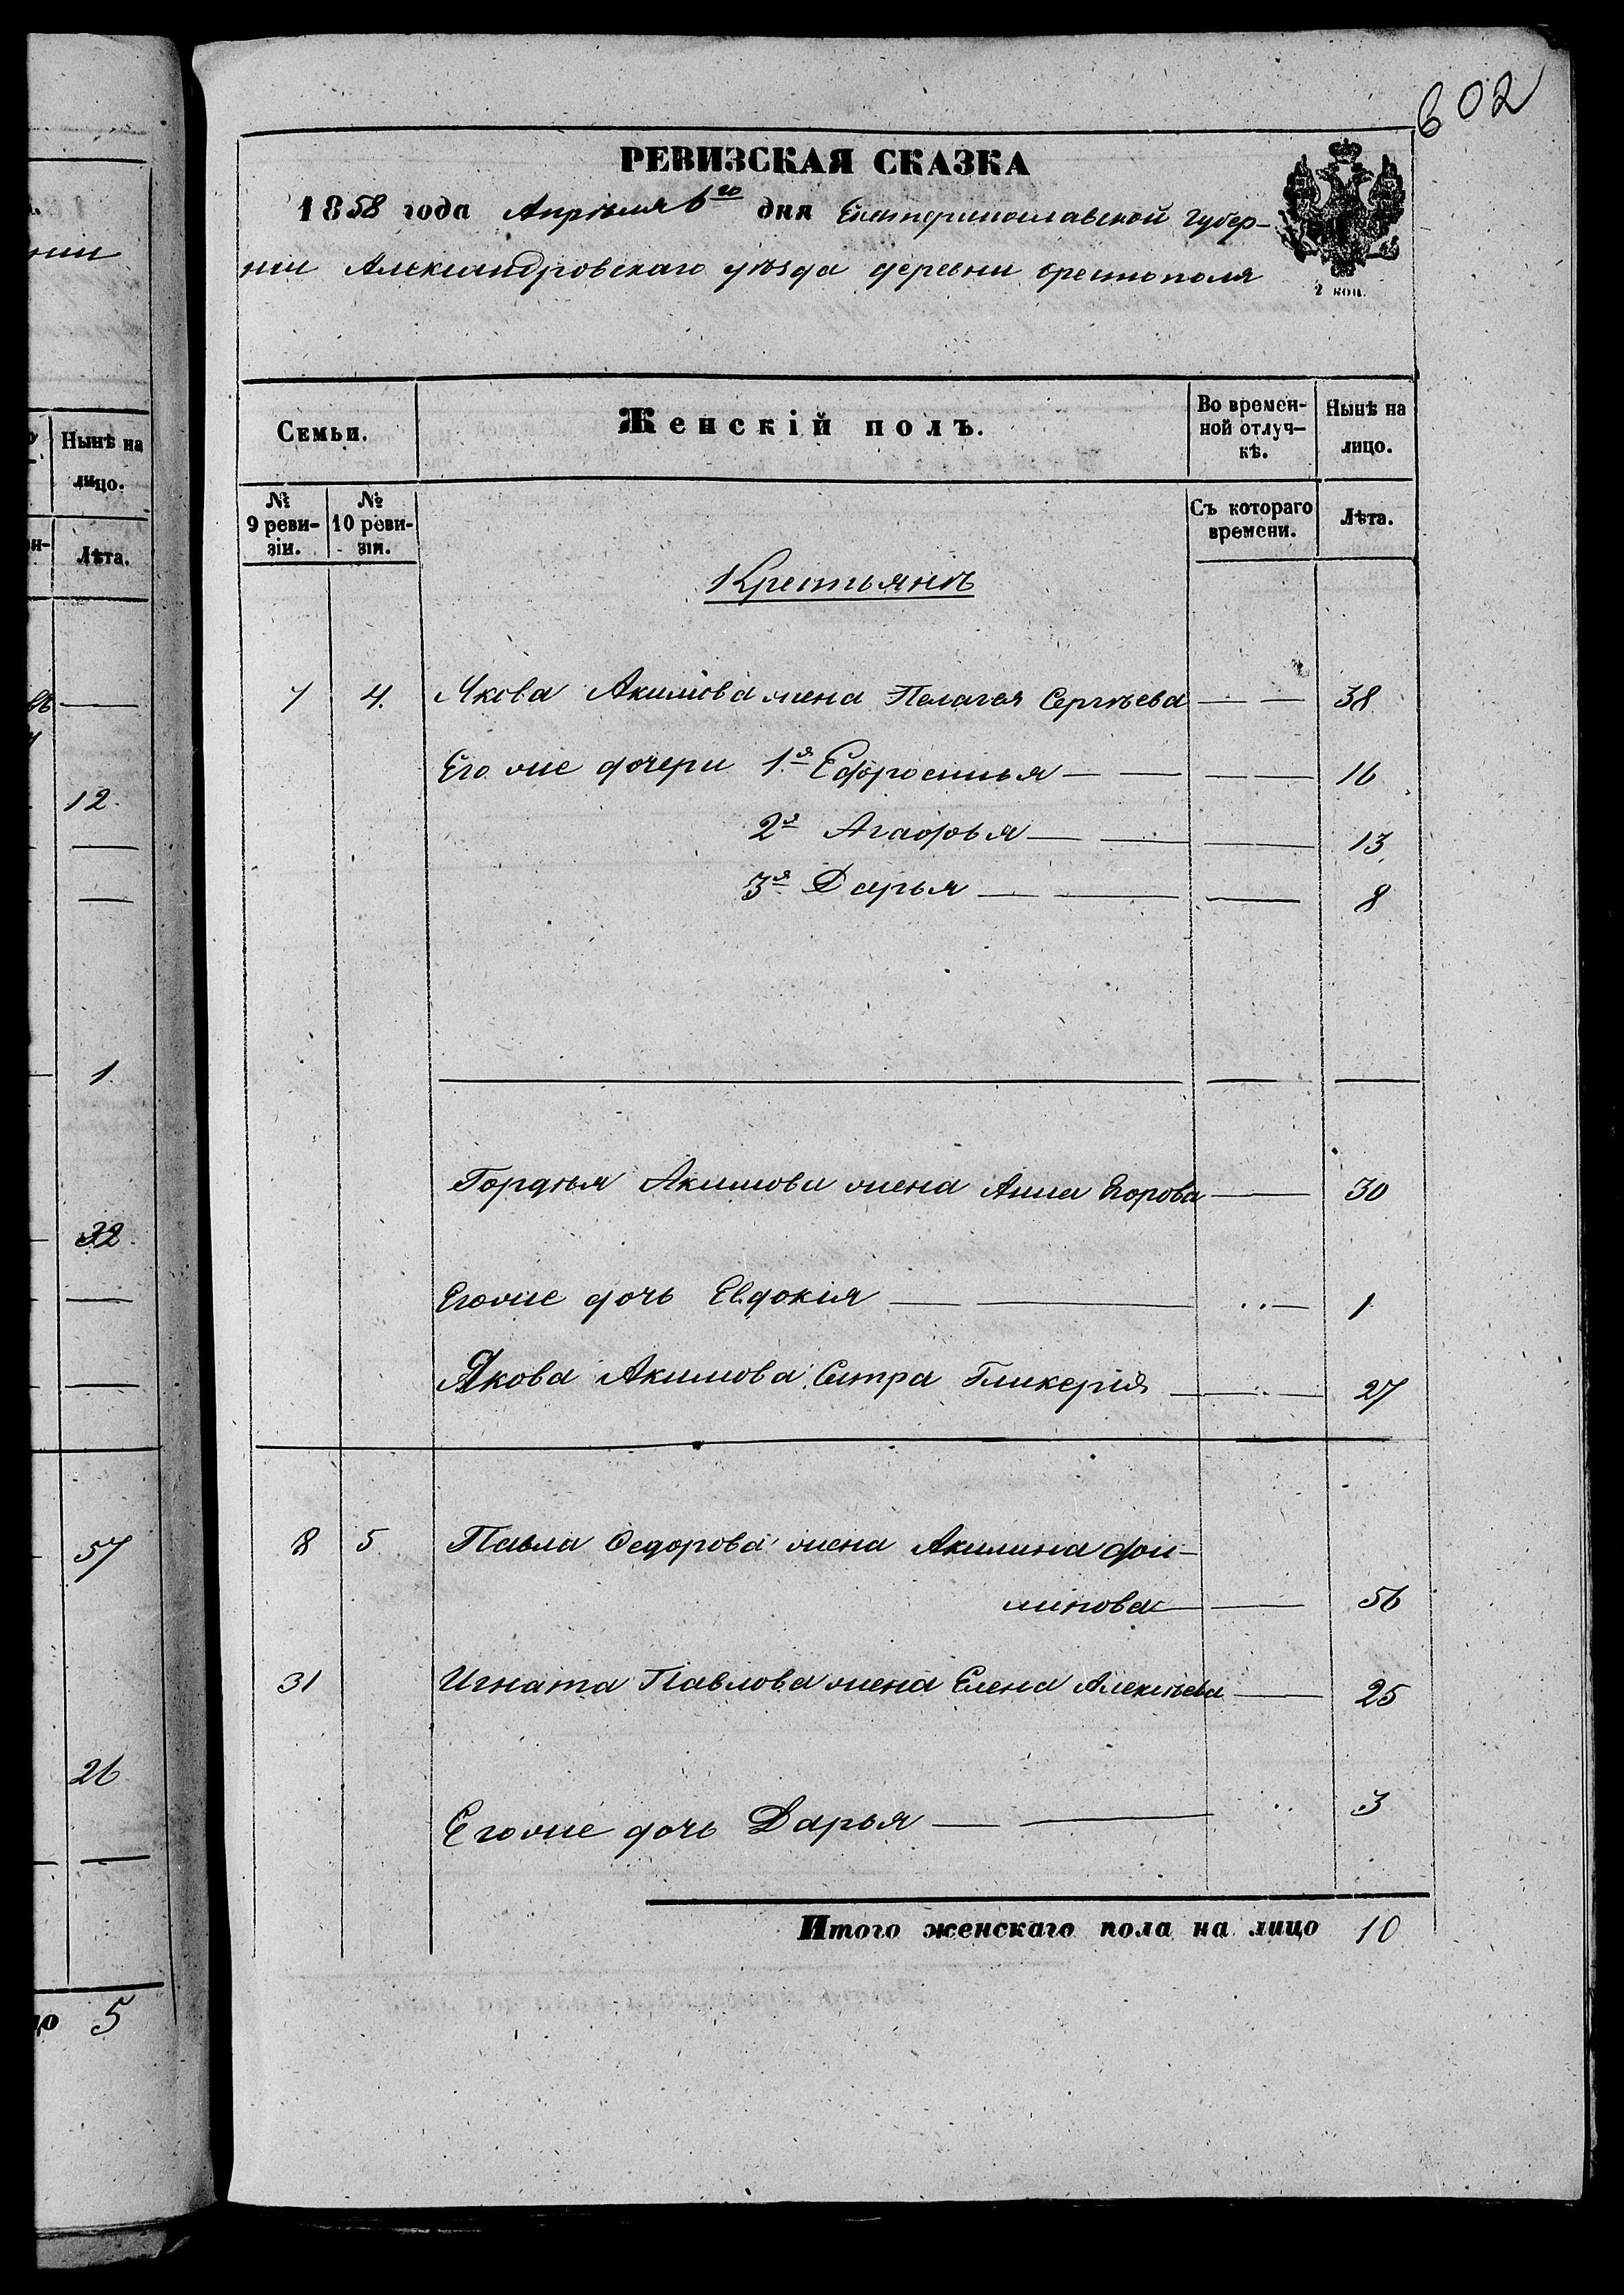 602
РЕВИЗСКАЯ СКАЗКА
1858 года Апрѣля 6го дня Екатеринославской Губер-
нии Александровскаго уѣзда деревни
2 коп.
Семьи. Женскій полъ. Во времен- Нынѣ на
ной отлуч- лицо.
кѣ.
№ № Съ котораго Лѣта.
9 реви- 10 реви- времени.
зіи. зіи.
Крестьянъ
7 4. Якова Акимова жена Пелагея Сергѣева — — 38
Его же дочери 1я Ефросинья — — — — 16
2я Агафья — — — 13
3я Дарья — — — 8
Гордѣя Акимова жена Анна Егорова — 30
Егоже дочь Евдокия — — — 1
Якова Акимова Систра Гликерия — — 27
8 5 Павла Федорова жена Акилина Фои-
минова — 56
31 Игната Павлова жена Елена Алексѣева — 25
Егоже дочь Дарья — — 3
Итого женскаго пола на лицо 10
нии
Нынѣ на
лицо.
Лѣта.
12.
1
32.
57
26
5